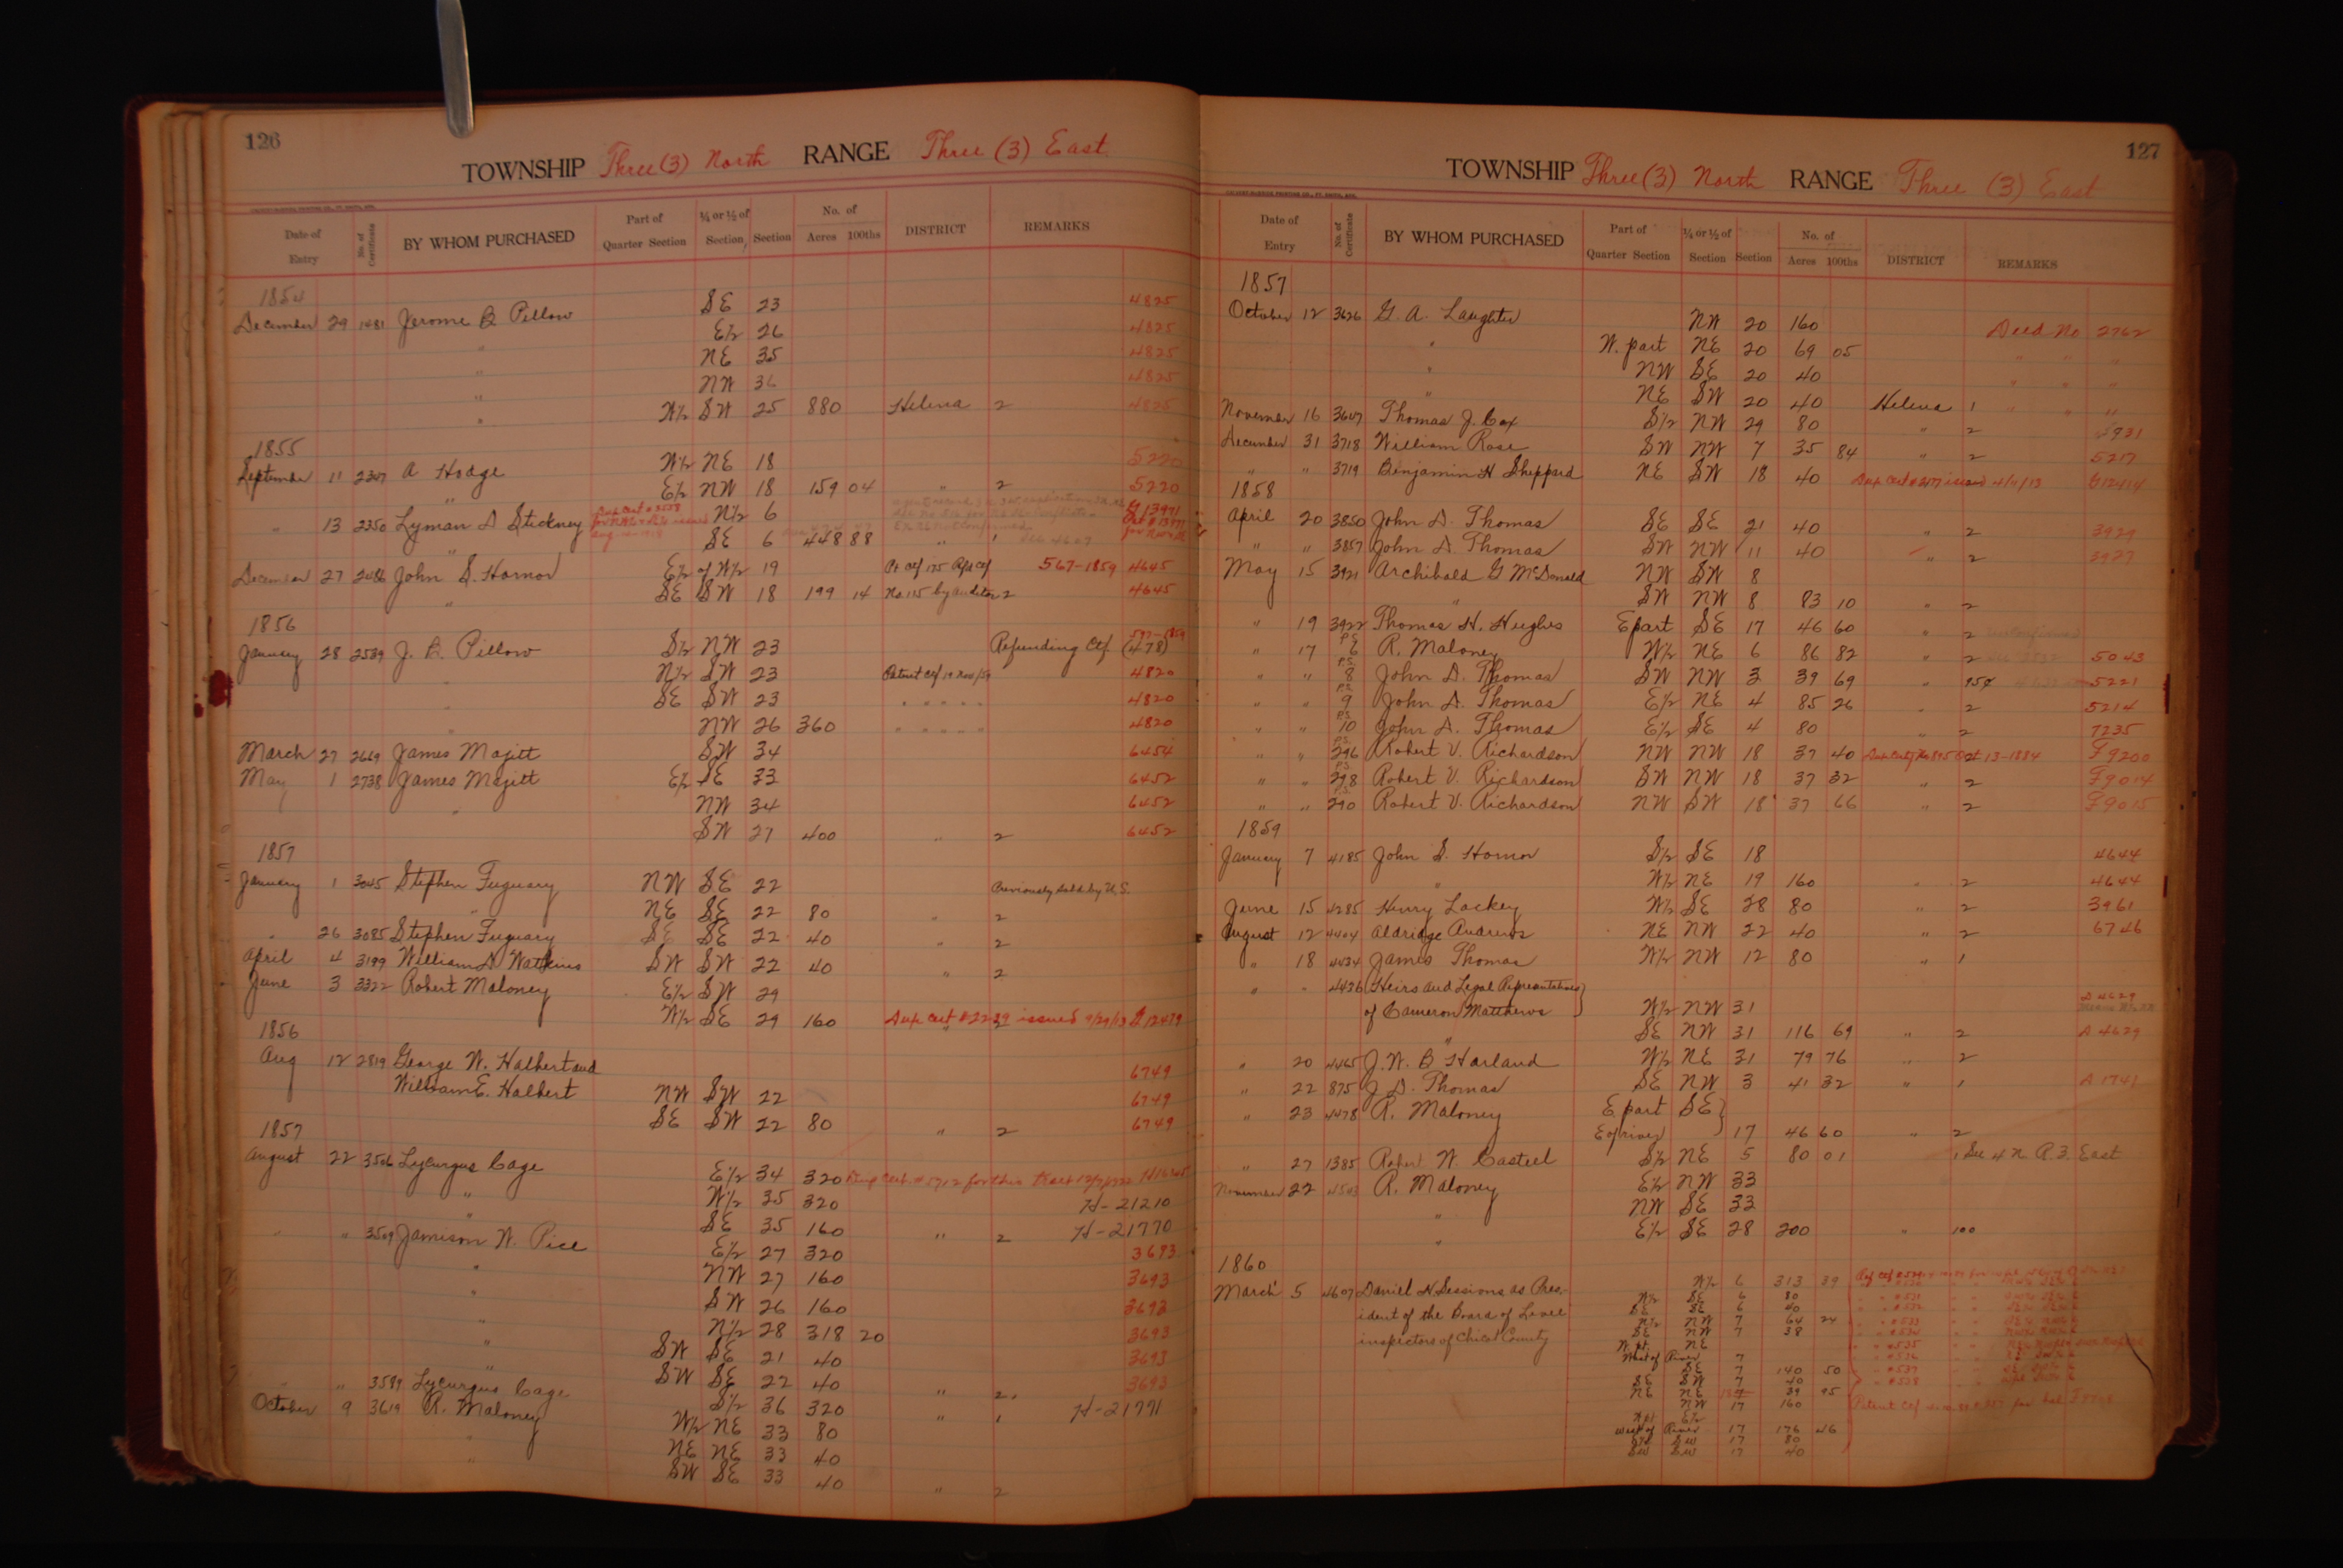 126
TOWNSHIP Three (3) North RANGE Three (3) East
Date of Entry No. of Certificate BY WHOM PURCHASED Part of Quarter Section ¼ or ½ of Section Section No. of Acres 100ths DISTRICT REMARKS
1854
December 29 1481 Jerome B Pillow SE 23 4825
E½ 26 4825
" NE 35 4825
" NW 36 4825
" W½ SW 25 880 Helena 2 4825
1855
September 11 2347 A Hodge W½ NE 18 5220
" E½ NW 18 159 04 " 2 5220
" 13 2350 Lyman D Stickney N½ 6 G 13971
" SE 6 448 88 " 1
December 27 2486 John S. Hornor E½ of W½ 19 567-1859 4645
" SE SW 18 199 14 No. 115 by auditor 2 4645
1856
January 28 2539 J. B. Pillow S½ NW 23 Refunding Ctf (478)
" N½ SW 23 Patent Ctf 4820
" SE SW 23 " " " " " 4820
" NW 26 360 " " " " " 4820
March 27 2669 James Majett SW 34 6454
May 1 2738 James Majett E½ SE 33 6452
" NW 34 6452
SW 27 400 " 2 6452
1857
January 1 3045 Stephen Fuguary NW SE 22 Previously sold by U.S.
" NE SE 22 80 " 2
" 26 3085 Stephen Fuguary SE SE 22 40 " 2
April 4 3199 William D Watkins SW SW 22 40 " 2
June 3 3322 Robert Maloney E½ SW 29
W½ SE 29 160 Dup Cert # 2239 issued 9/29/13
1856
Aug 12 2819 George W. Halbert and 6749
William E. Halbert NW SW 22 6749
SE SW 22 80 " 2 6749
1857
August 22 3506 Lycurgus Cage E½ 34 320
" W½ 35 320 H-21210
" SE 35 160 " 2 H-21770
" " 3509 Jamison W. Rice E½ 27 320 3693
" NW 27 160 3693
" SW 26 160 3693
" N½ 28 318 20 3693
" SW SE 21 40 3693
" SW SE 22 40 " 2 3693
" " 3589 Lycurgus Cage S½ 36 320 " 1 H-21771
October 9 3619 R. Maloney W½ NE 33 80
" NE NE 33 40
" SW SE 33 40 " 2
127
TOWNSHIP Three (3) North RANGE Three (3) East
Date of Entry No. of Certificate BY WHOM PURCHASED Part of Quarter Section ¼ or ½ of Section Section No. of Acres 100ths DISTRICT REMARKS
1857
October 12 3626 G. A. Laughter NW 20 160 Deed No 2762
" W. part NE 20 69 05 " " "
" NW SE 20 40 " " "
" NE SW 20 40 Helena 1 " " "
November 16 3667 Thomas J. Cox S½ NW 29 80 " 2
December 31 3718 William Rose SW NW 7 35 84 " 2 5217
" " 3719 Benjamin H Sheppard NE SW 18 40 G12414
1858
April 20 3850 John D. Thomas SE SE 21 40 " 2 3929
" " 3857 John D. Thomas SW NW 11 40 " 2 3927
May 15 3921 Archibald G McDonald NW SW 8
" SW NW 8 83 10 " 2
" 19 3922 Thomas H. Hughes E part SE 17 46 60 " 2
" 17 P.S. 6 R. Maloney W½ NE 6 86 82 " 2 5043
" " P.S. 8 John D. Thomas SW NW 3 39 69 " 5221
" " P.S. 9 John D. Thomas E½ NE 4 85 26 " 2 5214
" " P.S. 10 John D. Thomas E½ SE 4 80 " 2 7235
" " P.S. 296 Robert V. Richardson NW NW 18 37 40 13-1884 F9200
" " P.S. 298 Robert V. Richardson SW NW 18 37 32 " 2 F9014
" " P.S. 290 Robert V. Richardson NW SW 18 37 66 " 2 F9015
1859
January 7 4185 John S. Hornor S½ SE 18 4644
" W½ NE 19 160 " 2 4644
June 15 4285 Henry Lackey W½ SE 28 80 " 2 3961
August 12 4404 Aldridge Andrews NE NW 22 40 " 2 6746
" 18 4434 James Thomas W½ NW 12 80 " 1
" " 4426 Heirs and Legal Representatives
of Cameron Matthews W½ NW 31 A 4629
" SE NW 31 116 69 " 2 A 4629
" 20 4465 J. W. B Harland W½ NE 31 79 76 " 2
" 22 875 J. D. Thomas SE NW 3 41 32 " 1 A 1741
" 23 4478 R. Maloney E. part SE
E of river 17 46 60 " 2
" 27 1385 Robert W. Casteel S½ NE 5 80 01 1 See 4 N R 3. East
November 22 4503 R. Maloney E½ NW 33
" NW SE 33
" E½ SE 28 200 " 100
1860
March 5 4607 Daniel N Sessions as Pres- W½ 6 313 39
W½ SE 6 80
ident of the Board of Levee SE SE 6 40
N½ NW 7 64 24
inspectors of Chicot County SE NW 7 38
W. pt. NE
West of River 7
SE 7 140 50
SE SW 7 40
NE NE 39 95
NW 17 160
W pt E½
west of River 17 176 46
SW 17 80
SW SW 17 40